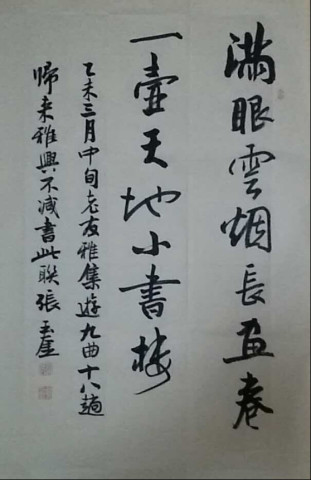 滿眼雲烟長画卷
一壺天地小書楼
乙未三月中旬老友雅集遊九曲十八趟
帰来雅興不减書此聯張玉